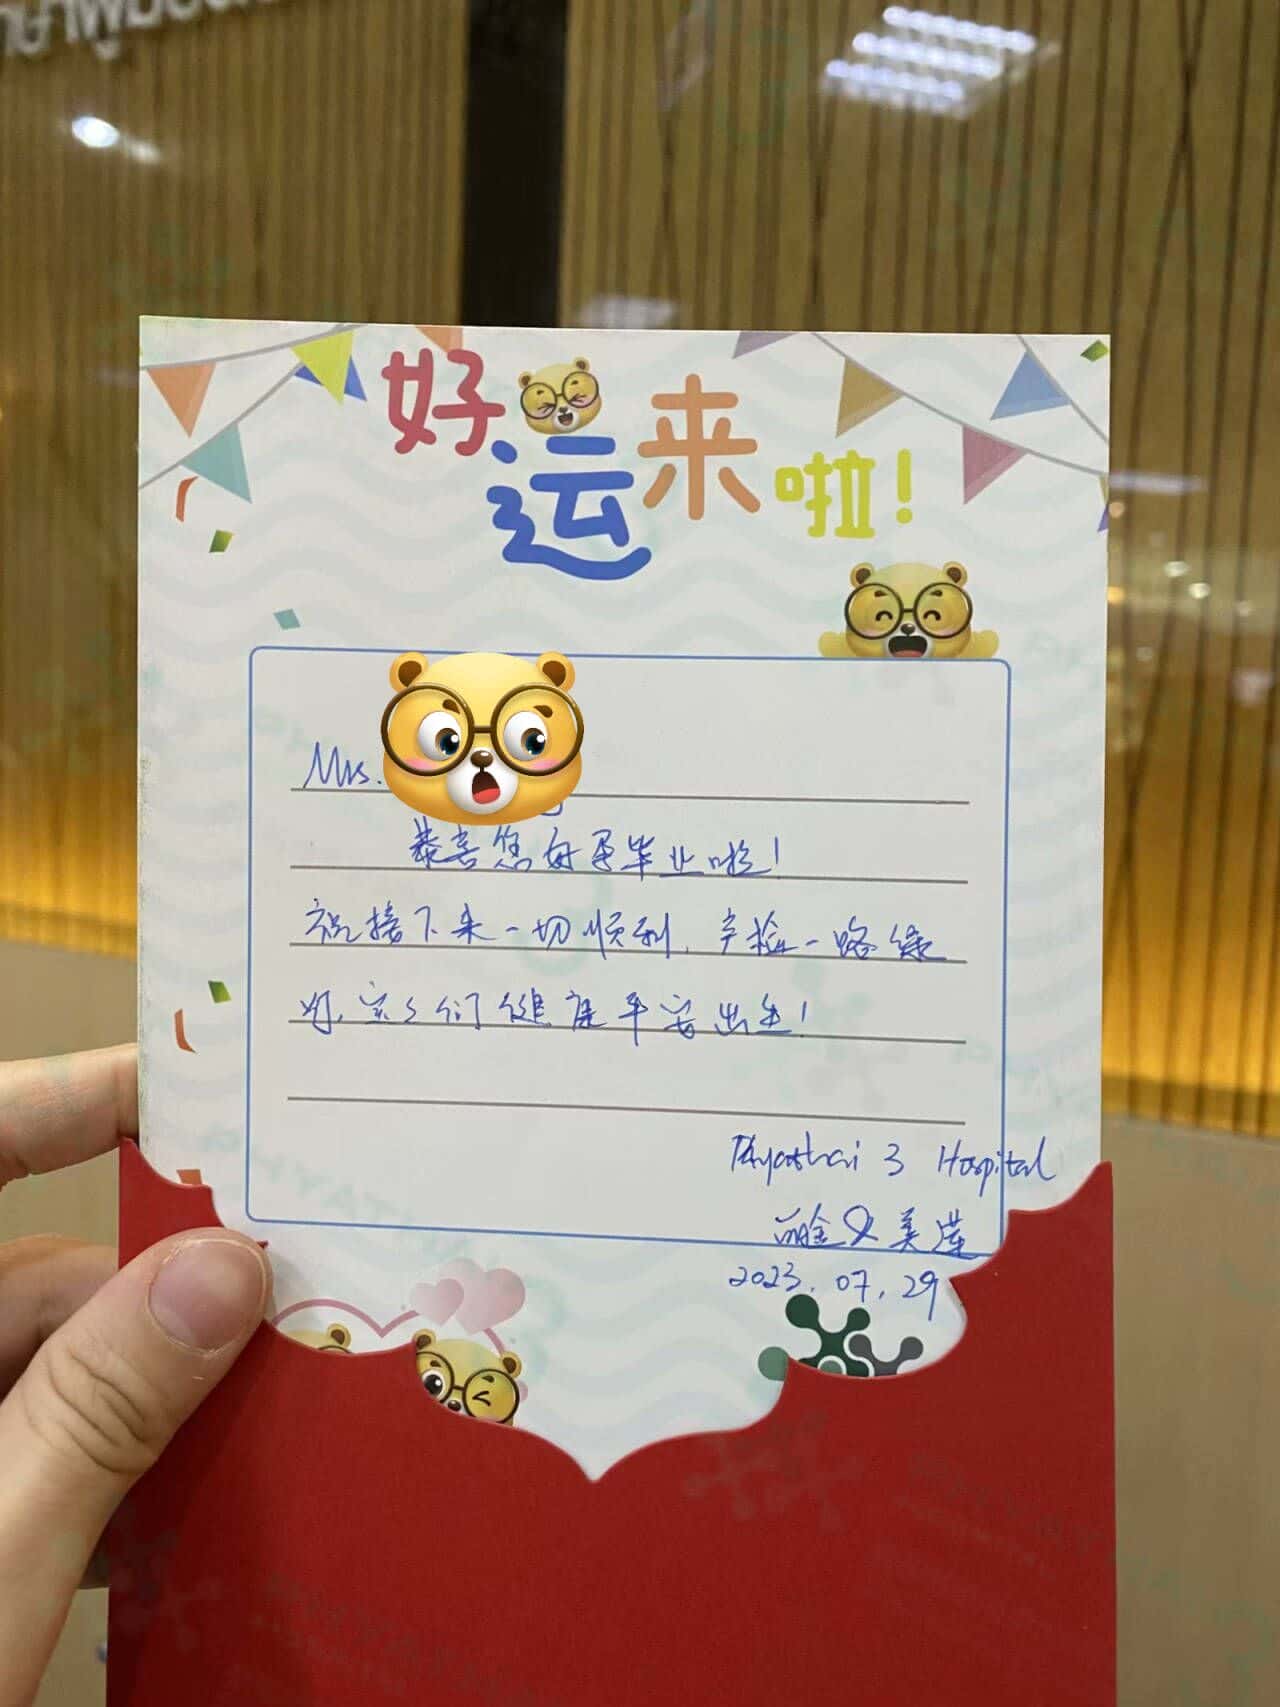 好运来啦!
Mrs.
恭喜您好孕毕业啦!
祝接下来一切顺利,产检一路绿
灯,宝宝们健康平安出生!
Phyathai 3 Hospital
美莲
2023.07.29